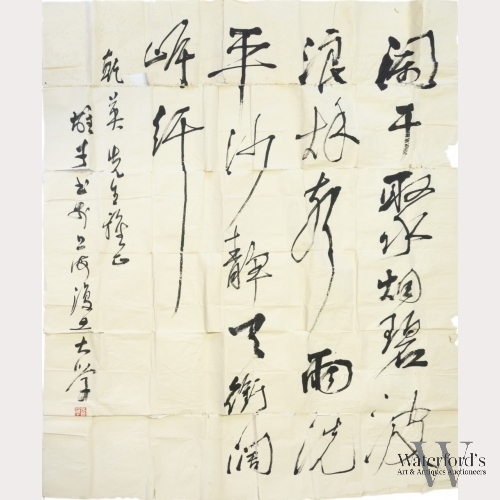 干聚烟碧波
浪声雨洗
平沙静天衔阔
岸纡
乾英先生雅正
书于上海復旦大学
W
Waterford's
Art & Antiques auctioneers